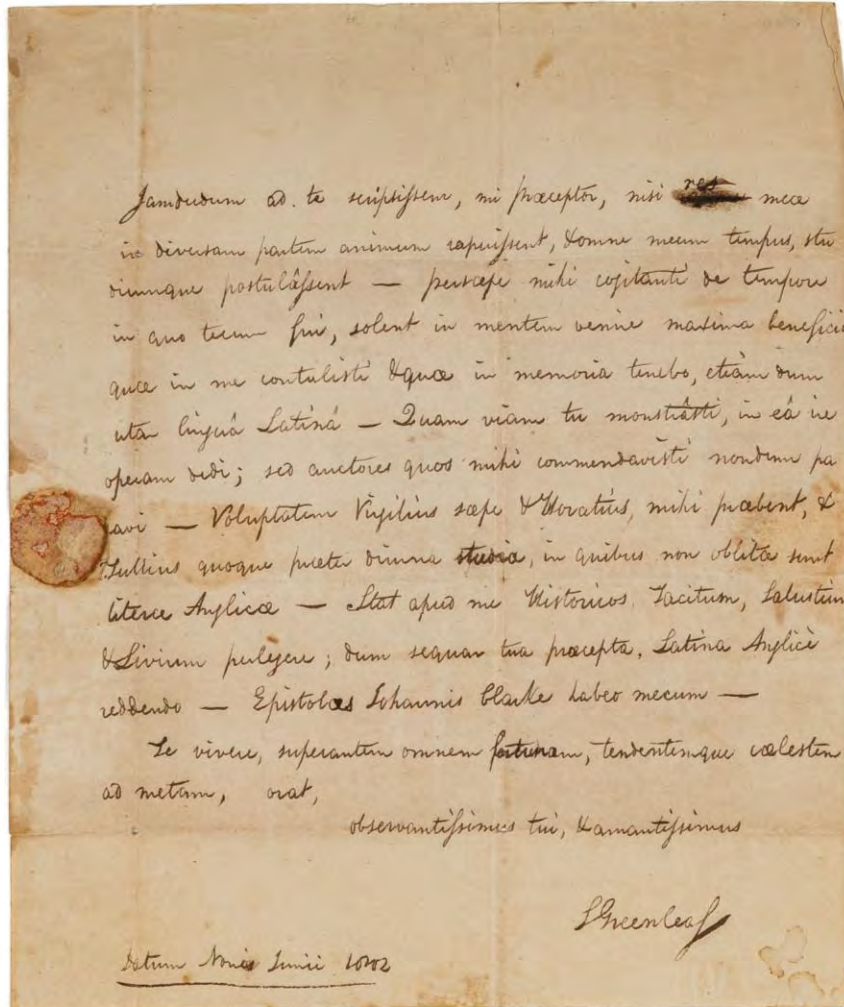 Jamdudum ad te scripsissem, mi præceptor, nisi res meæ
in diversam partem animum rapuissent, & omne mecum tempus, stu
diumque postulâssent — persæpe mihi cogitanti de tempore
in quo tecum fui, solent in mentem venire maxima beneficia
quæ in me contulisti & quæ in memoria tenebo, etiam dum
utar linguâ Latinâ — Quam viam tu monstrâsti, in eâ ire
operam dedi; sed auctores quos mihi commendavisti nondum pa
ravi — Voluptatem Virgilius sæpe & Horatius, mihi præbent, &
Tullius quoque præter diurna studia, in quibus non oblitæ sunt
literæ Anglicæ — Stat apud me Historicos, Tacitum, Salustium
& Livium perlegere; dum sequar tua præcepta, Latina Anglicè
reddendo — Epistolas Johannis Clarke habeo mecum —
Te vivere, superantem omnem fortunam, tendentemque cælestem
ad metam, orat,
observantissimus tui, & amantissimus
S Greenleaf
Datum Nonis Junii